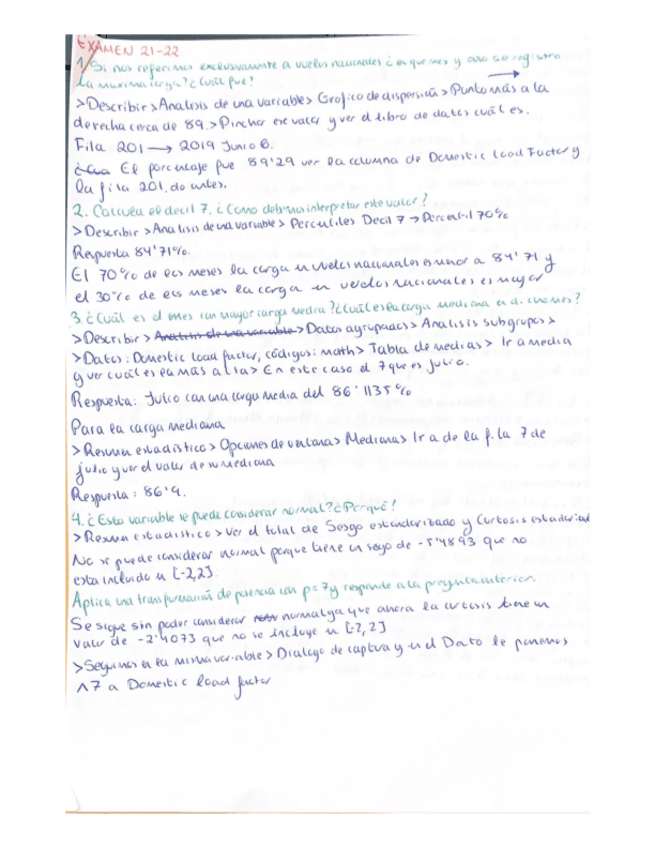 EXAMEN 21-22
1. Si nos referimos exclusivamente a vuelos nacionales ¿en que mes y año se registro
la maxima carga? ¿Cuál fue?
> Describir > Analisis de una variable > Grafico de dispersión > Punto más a la
derecha cerca de 89. > Pinchar ese valor y ver el libro de datos cuál es.
Fila 201 → 2019 Junio 6.
El porcentaje fue 89'29 ver la columna de Domestic Load Factor y
la fila 201, de antes.
2. Calcula el decil 7. ¿Como debemos interpretar este valor?
> Describir > Analisis de una variable > Percentiles Decil 7 → Percentil 70%
Respuesta 84'71%.
El 70% de los meses la carga en vuelos nacionales es menor a 84'71 y
el 30% de los meses la carga en vuelos nacionales es mayor
3. ¿Cuál es el mes con mayor carga media? ¿Cuál es la carga mediana en dicho mes?
> Describir > Analisis de una variable > Datos agrupados > Analisis subgrupos >
> Datos: Domestic load factor, códigos: month > Tabla de medias > Ir a media
y ver cuál es la más alta > En este caso el 7 que es Julio.
Respuesta: Julio con una carga media del 86'1135%
Para la carga mediana
> Resumen estadístico > Opciones de ventana > Mediana > Ir a de la fila 7 de
julio y ver el valor de su mediana
Respuesta: 86'9.
4. ¿Esta variable se puede considerar normal? ¿Porqué?
> Resumen estadistico > Ver el total de Sesgo estandarizado y Curtosis estandarizad
No se puede considerar normal porque tiene un sesgo de -5'4893 que no
esta incluido en [-2,2].
Aplica una transformación de potencia con p=7 y responde a la pregunta anterior.
Se sigue sin poder considerar normal ya que ahora la curtosis tiene un
valor de -2'4073 que no se incluye en [-2,2]
> Seguimos en la misma variable > Dialogo de captura y en el Dato le ponemos
^7 a Domestic load factor